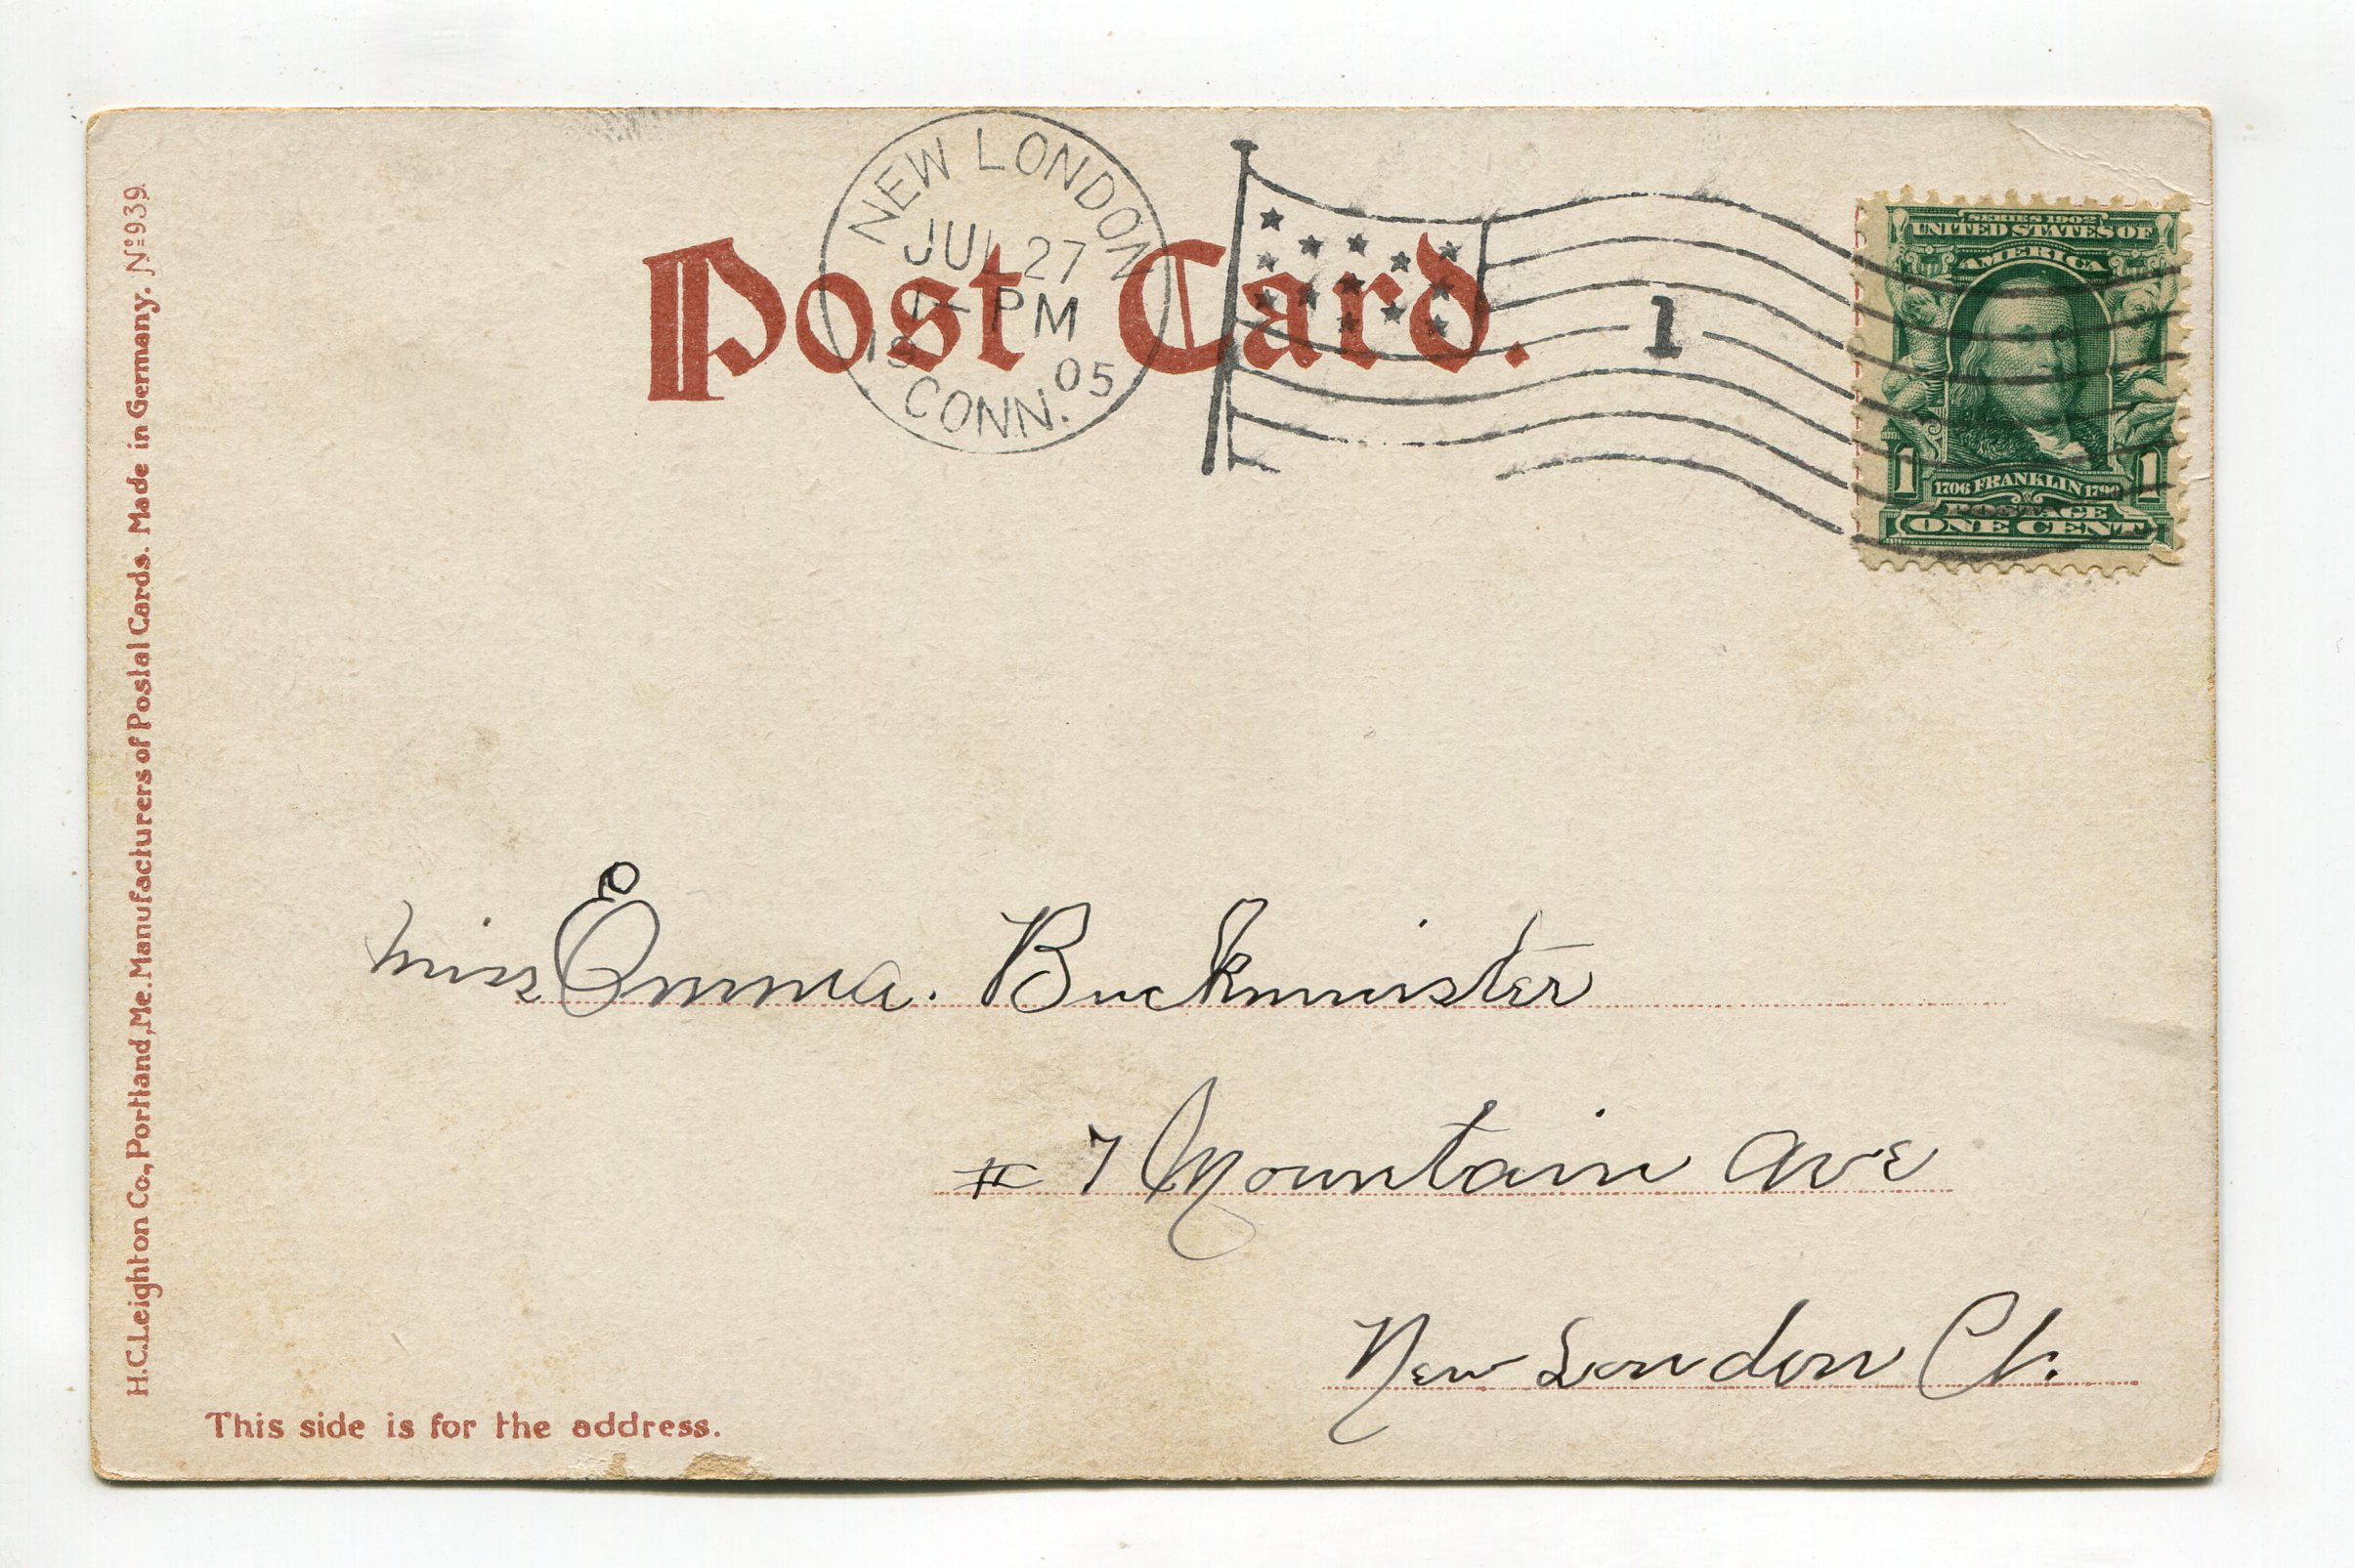 NEW LONDON
JUL 27
PM
05
CONN.
Post Card.
1
SERIES 1902
UNITED STATES OF
AMERICA
1 1706 FRANKLIN 1790 1
POSTAGE
ONE CENT
Miss Emma. Buckminster
# 7 Mountain Ave
New London Ct.
This side is for the address.
H.C. Leighton Co., Portland, Me. Manufacturers of Postal Cards. Made in Germany. Nº 939.